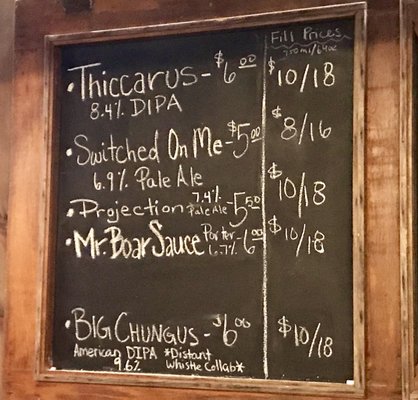 Fill Prices
750ml/64oz
• Thiccarus - $6.00 $10/18
8.4% DIPA
• Switched On Me - $5.00 $8/16
6.9% Pale Ale
• Projection 7.4% Pale Ale - 5.50 $10/18
• Mr. Boar Sauce Porter 6.7% - 6.00 $10/18
• BIG CHUNGUS - $6.00 $10/18
American DIPA *Distant
9.6% Whistle Collab*